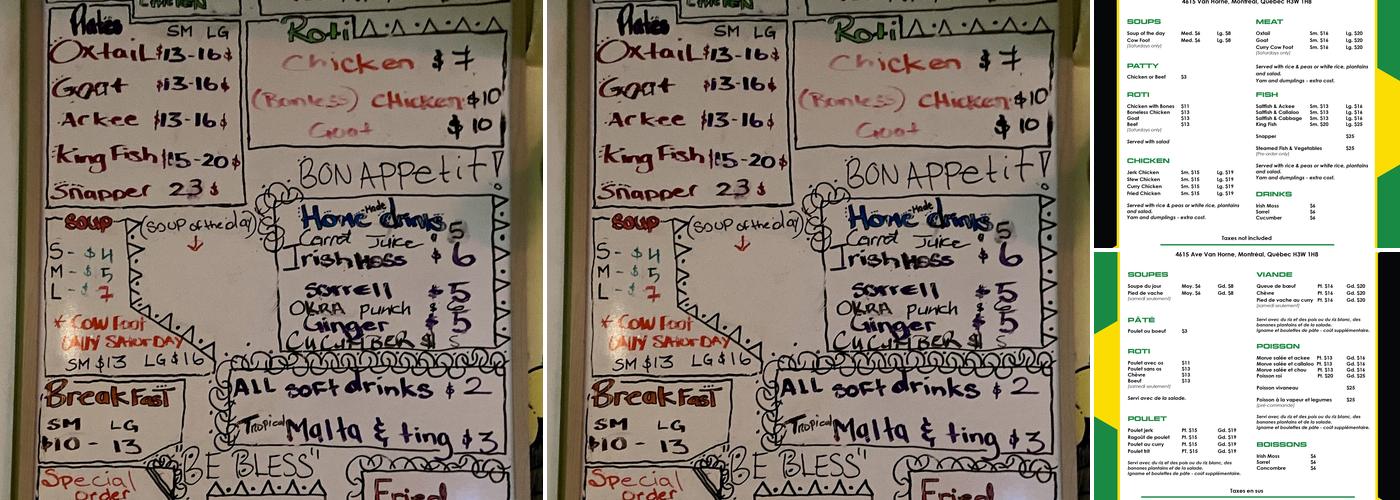 Plates SM LG
Oxtail $13-16$
Goat $13-16$
Arkee $13-16$
King Fish $15-20$
Snapper 23$
Roti
Chicken $7
(Bonless) CHicken $10
Goat $10
BON APPetit!
SOUP (SOUP of the day)
S - $4
M - $5
L - $7
* COW Foot
ONLY SATURDAY
SM $13 LG $16
Home Made drinks
Carrot Juice $5
Irish Moss $6
Sorrell $5
OKRA Punch $6
Ginger $5
CUCUMBER $5
BreakFast
SM LG
$10 - 13
ALL soft drinks $2
Tropical Malta & ting $3
"BE BLESS"
Special
order
Fried
Plates SM LG
Oxtail $13-16$
Goat $13-16$
Arkee $13-16$
King Fish $15-20$
Snapper 23$
Roti
Chicken $7
(Bonless) CHicken $10
Goat $10
BON APPetit!
SOUP (SOUP of the day)
S - $4
M - $5
L - $7
* COW Foot
ONLY SATURDAY
SM $13 LG $16
Home Made drinks
Carrot Juice $5
Irish Moss $6
Sorrell $5
OKRA Punch $6
Ginger $5
CUCUMBER $5
BreakFast
SM LG
$10 - 13
ALL soft drinks $2
Tropical Malta & ting $3
"BE BLESS"
Special
order
Fried
4615 Van Horne, Montréal, Québec H3W 1H8
SOUPS
Soup of the day Med. $6 Lg. $8
Cow Foot Med. $6 Lg. $8
(Saturdays only)
PATTY
Chicken or Beef $3
ROTI
Chicken with Bones $11
Boneless Chicken $13
Goat $13
Beef $13
(Saturdays only)
Served with salad
CHICKEN
Jerk Chicken Sm. $15 Lg. $19
Stew Chicken Sm. $15 Lg. $19
Curry Chicken Sm. $15 Lg. $19
Fried Chicken Sm. $15 Lg. $19
Served with rice & peas or white rice, plantains
and salad.
Yam and dumplings - extra cost.
MEAT
Oxtail Sm. $16 Lg. $20
Goat Sm. $16 Lg. $20
Curry Cow Foot Sm. $16 Lg. $20
(Saturdays only)
Served with rice & peas or white rice, plantains
and salad.
Yam and dumplings - extra cost.
FISH
Saltfish & Ackee Sm. $13 Lg. $16
Saltfish & Callaloo Sm. $13 Lg. $16
Saltfish & Cabbage Sm. $13 Lg. $16
King Fish Sm. $20 Lg. $25
Snapper $25
Steamed Fish & Vegetables $25
(Pre-order only)
Served with rice & peas or white rice, plantains
and salad.
Yam and dumplings - extra cost.
DRINKS
Irish Moss $6
Sorrel $6
Cucumber $6
Taxes not included
4615 Ave Van Horne, Montréal, Québec H3W 1H8
SOUPES
Soupe du jour Moy. $6 Gd. $8
Pied de vache Moy. $6 Gd. $8
(samedi seulement)
PÂTÉ
Poulet ou boeuf $3
ROTI
Poulet avec os $11
Poulet sans os $13
Chèvre $13
Boeuf $13
(samedi seulement)
Servi avec de la salade.
POULET
Poulet jerk Pt. $15 Gd. $19
Ragoût de poulet Pt. $15 Gd. $19
Poulet au curry Pt. $15 Gd. $19
Poulet frit Pt. $15 Gd. $19
Servi avec du riz et des pois ou du riz blanc, des
bananes plantains et de la salade.
Igname et boulettes de pâte - coût supplémentaire.
VIANDE
Queue de bœuf Pt. $16 Gd. $20
Chèvre Pt. $16 Gd. $20
Pied de vache au curry Pt. $16 Gd. $20
(samedi seulement)
Servi avec du riz et des pois ou du riz blanc, des
bananes plantains et de la salade.
Igname et boulettes de pâte - coût supplémentaire.
POISSON
Morue salée et ackee Pt. $13 Gd. $16
Morue salée et callaloo Pt. $13 Gd. $16
Morue salée et chou Pt. $13 Gd. $16
Poisson roi Pt. $20 Gd. $25
Poisson vivaneau $25
Poisson à la vapeur et legumes $25
(pré-commande)
Servi avec du riz et des pois ou du riz blanc, des
bananes plantains et de la salade.
Igname et boulettes de pâte - coût supplémentaire.
BOISSONS
Irish Moss $6
Sorrel $6
Concombre $6
Taxes en sus